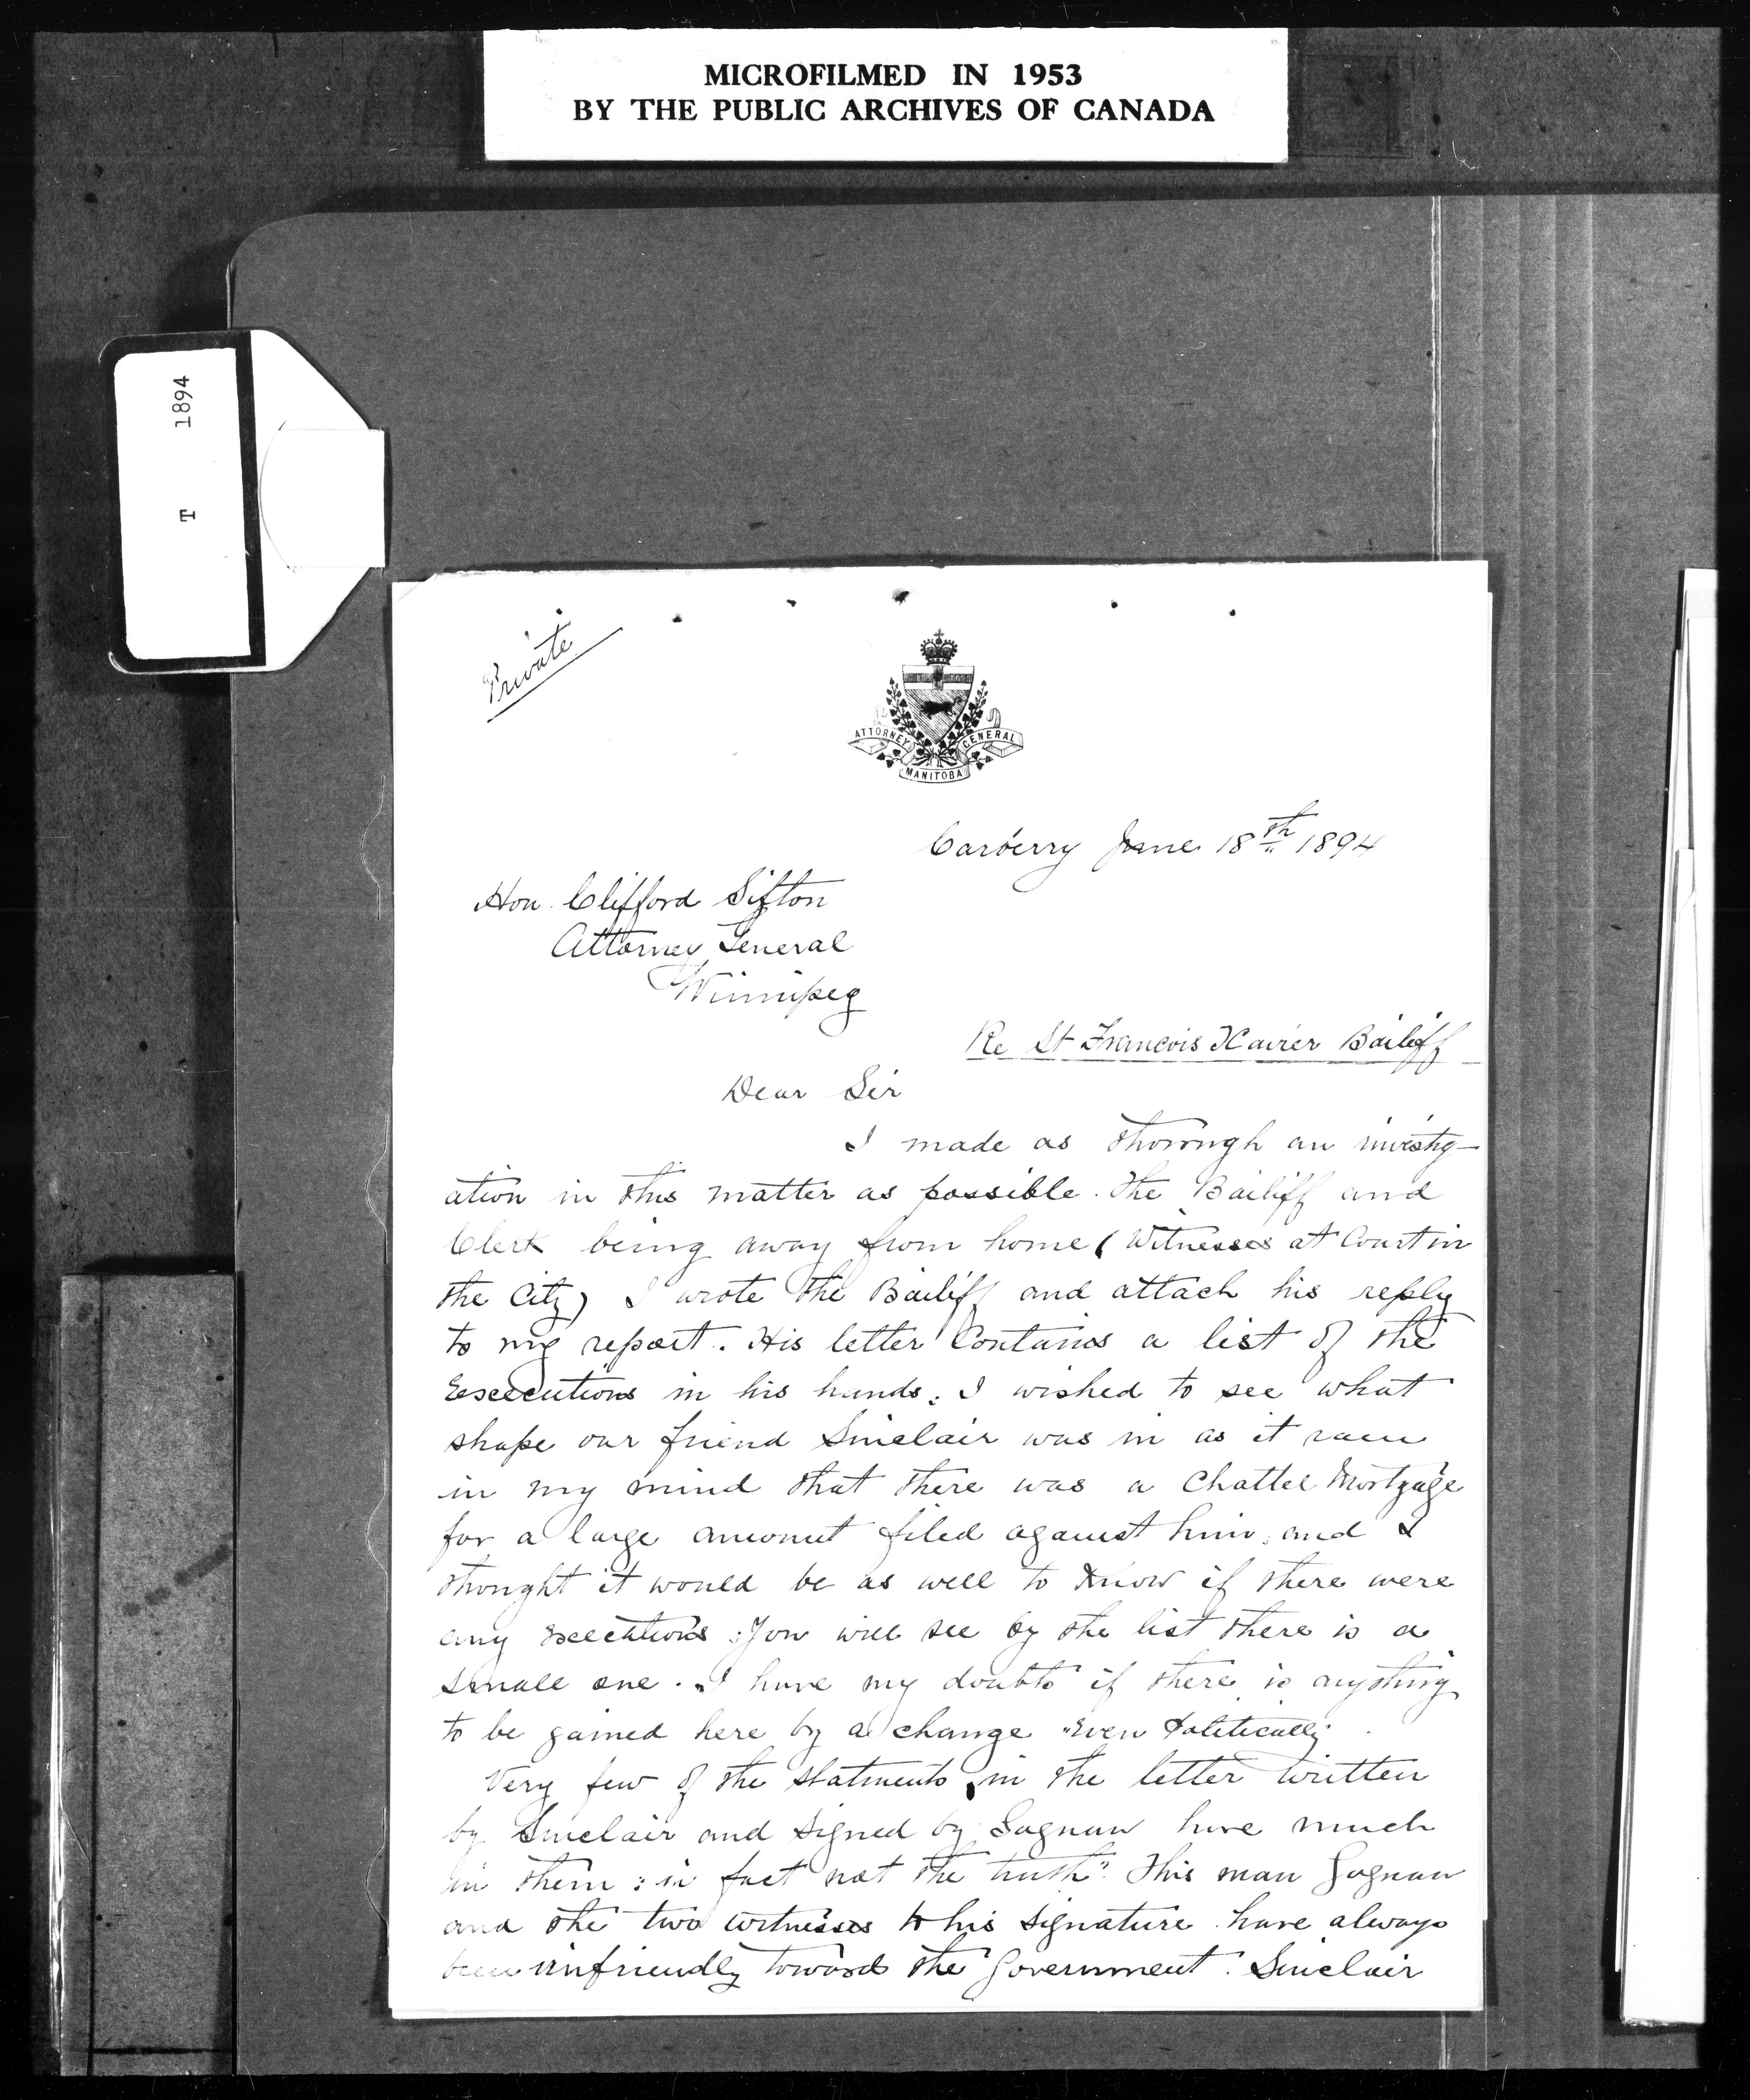 MICROFILMED IN 1953
BY THE PUBLIC ARCHIVES OF CANADA
T 1894
Private
ATTORNEY GENERAL
MANITOBA
Carberry June 18th 1894
Hon. Clifford Sifton
Attorney General
Winnipeg
Re St Francois Xavier Bailiff
Dear Sir
I made as thorough an investig-
ation in this matter as possible. The Bailiff and
Clerk being away from home (Witnesses at Court in
the City) I wrote the Bailiff and attach his reply
to my report. His letter Contains a list of the
Executions in his hands. I wished to see what
shape our friend Sinclair was in as it ran
in my mind that there was a Chattel Mortgage
for a large amount filed against him, and I
thought it would be as well to Know if there were
any Executions. You will see by the list there is a
small one. I have my doubts if there is anything
to be gained here by a change "Even Politically"
Very few of the statments in the letter written
by Sinclair and signed by Gagnan have much
in them: in fact not the truth". This man Gagnan
and the two witnesses to his signature have always
been unfriendly towards the Government. Sinclair